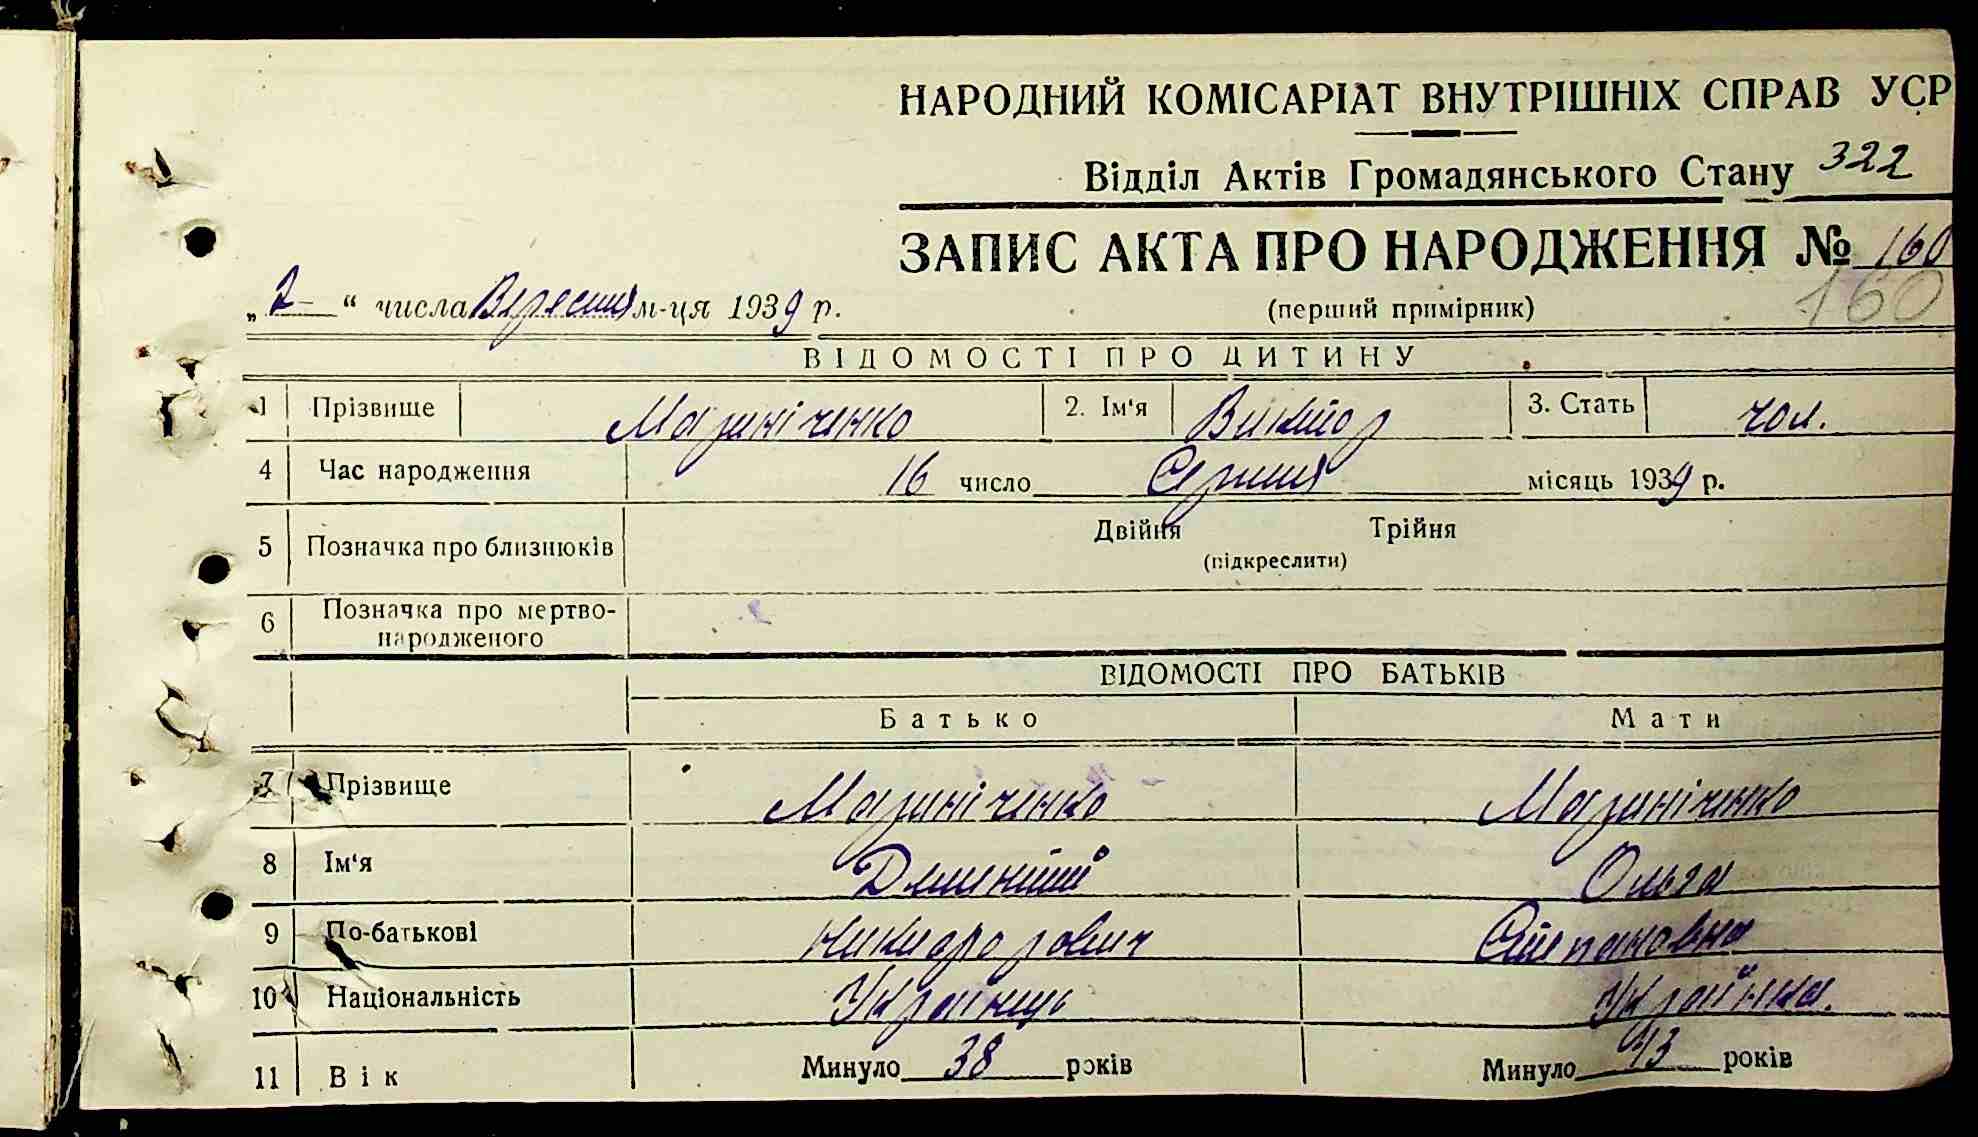 НАРОДНИЙ КОМІСАРІАТ ВНУТРІШНІХ СПРАВ УСР
Відділ Актів Громадянського Стану 322
ЗАПИС АКТА ПРО НАРОДЖЕННЯ № 160
„2" числа Вересня м-ця 1939 р. (перший примірник) 160
ВІДОМОСТІ ПРО ДИТИНУ
1 Прізвище Мариніченко 2. Ім'я Виктор 3. Стать чол.
4 Час народження 16 число Серпня місяць 1939 р.
5 Позначка про близнюків Двійня Трійня
(підкреслити)
6 Позначка про мертво-
народженого
ВІДОМОСТІ ПРО БАТЬКІВ
Батько Мати
7 Прізвище Мариніченко Мариніченко
8 Ім'я Дмитрій Ольга
9 По-батькові Никифорович Степановна
10 Національність Українець Українка.
11 Вік Минуло 38 років Минуло 43 років